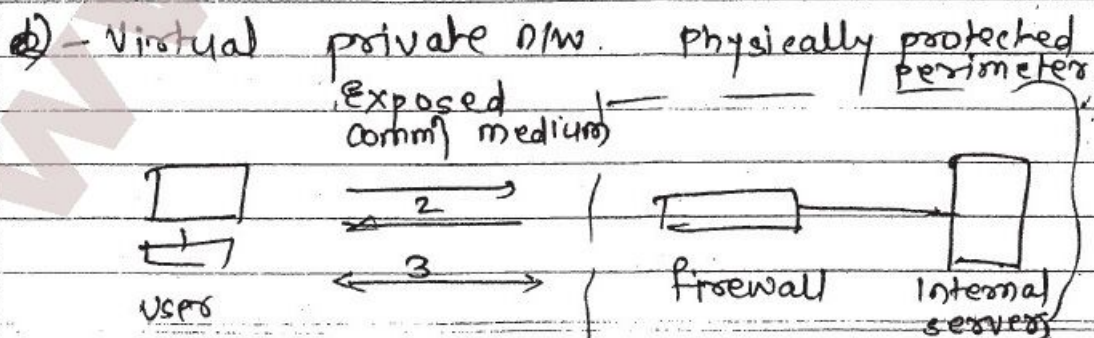 d) - Virtual private n/w. physically protected
perimeter
Exposed
commn medium
2
3
user
firewall
Internal
servers